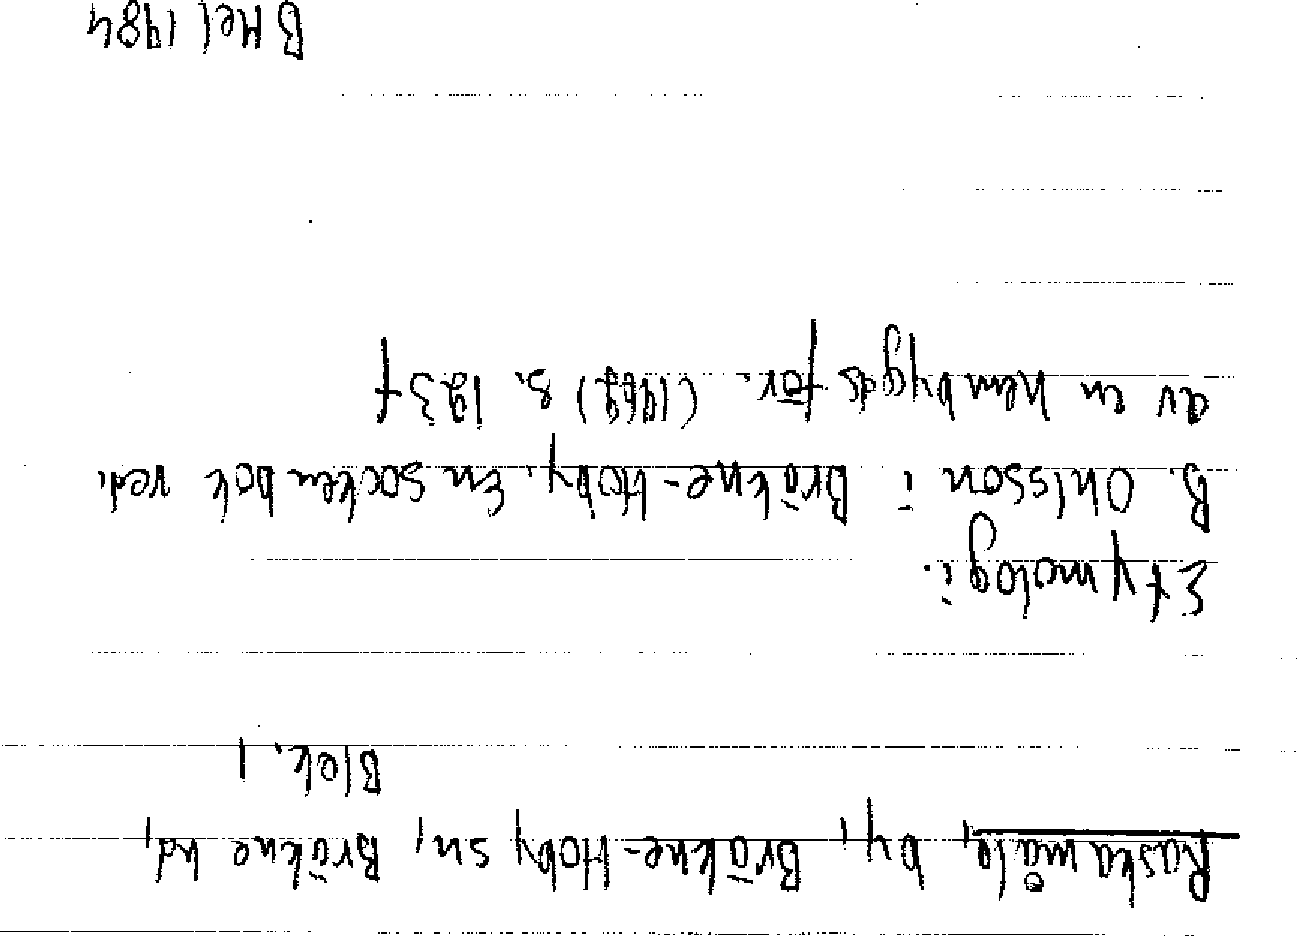 Raskamåla, by, Bräkne-Hoby sn, Bräkne hd,
Blek. l
Etymologi:
B. Ohlsson i Bräkne-Hoby. En sockenbok red.
av en hembygdsför. (1969) s. 123 f
B Hel 1984